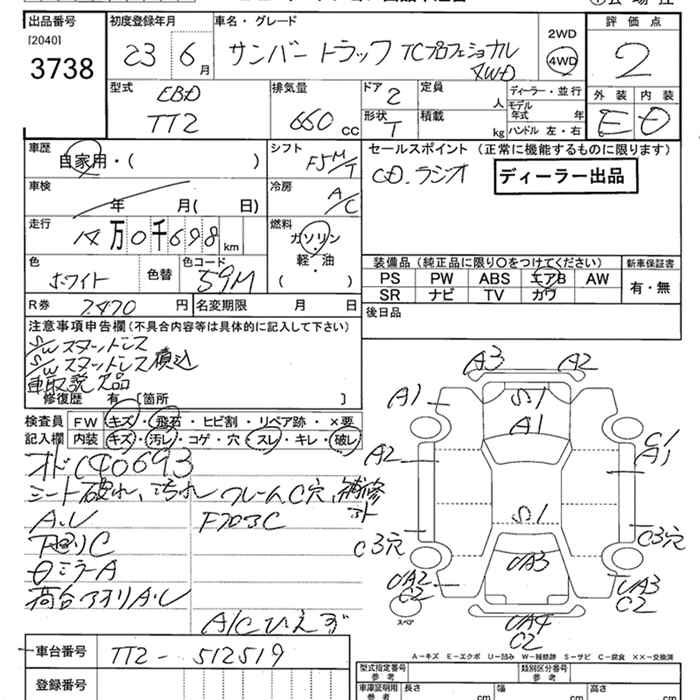 出品番号 初度登録年月 車名・グレード 評価点
[2040]
3738
23 6月 サンバートラック TCプロフェショナル 4WD
2WD
4WD
2
型式 EBD TT2
排気量 660 cc
ドア 2 定員 人
形状 T 積載 kg
ディーラー・並行
モデル年式 年
ハンドル 左・右
外装 内装
E D
車歴 自家用・( )
シフト F5M/T
セールスポイント (正常に機能するものに限ります)
CD.ラジオ ディーラー出品
車検 年 月( 日)
冷房 A/C
走行 14万0千698km
燃料 ガソリン・軽・油 ( )
色 ホワイト 色替 色コード 59M
装備品 (純正品に限り○をつけてください) 新車保証書
PS PW ABS エアB AW 有・無
SR ナビ TV カワ
R券 7,470円 名変期限 月 日
後日品
注意事項申告欄(不具合内容等は具体的に記入して下さい)
S/Wスタットレス
S/Wスタットレス積込
車取説欠品
修復歴 有 [箇所 ]
検査員 FW キズ・飛石・ヒビ割・リペア跡・×要
記入欄 内装 キズ・汚レ・コゲ・穴・スレ・キレ・破レ
シート破れ、汚れ フレームC穴、補修
A.U
下廻りC
荷台アオリA.U
A/Cひえず
A3 A2
A1 S.1
A1
C1
A1
A2
S.1
C3穴 C3穴
UA3
UA2 C2 UA3 C2
スペア
UA4
C2
A-キズ E-エクボ U-凹み W-補修跡 S-サビ C-腐食 ××-交換済
車台番号 TT2-512519
型式指定番号 参考 類別区分番号 参考
登録番号
車庫証明用 参考 長さ cm 幅 cm 高さ cm